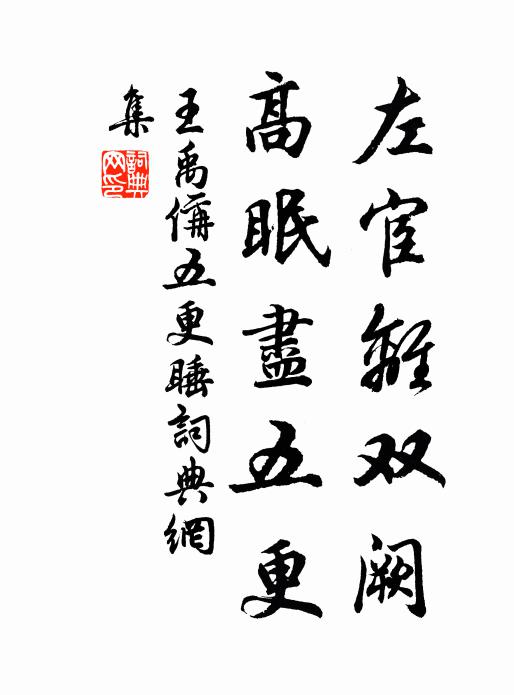 左宦離双阙
高眠盡五更
王禹偁五更睡詞典網
集
詞典
网印